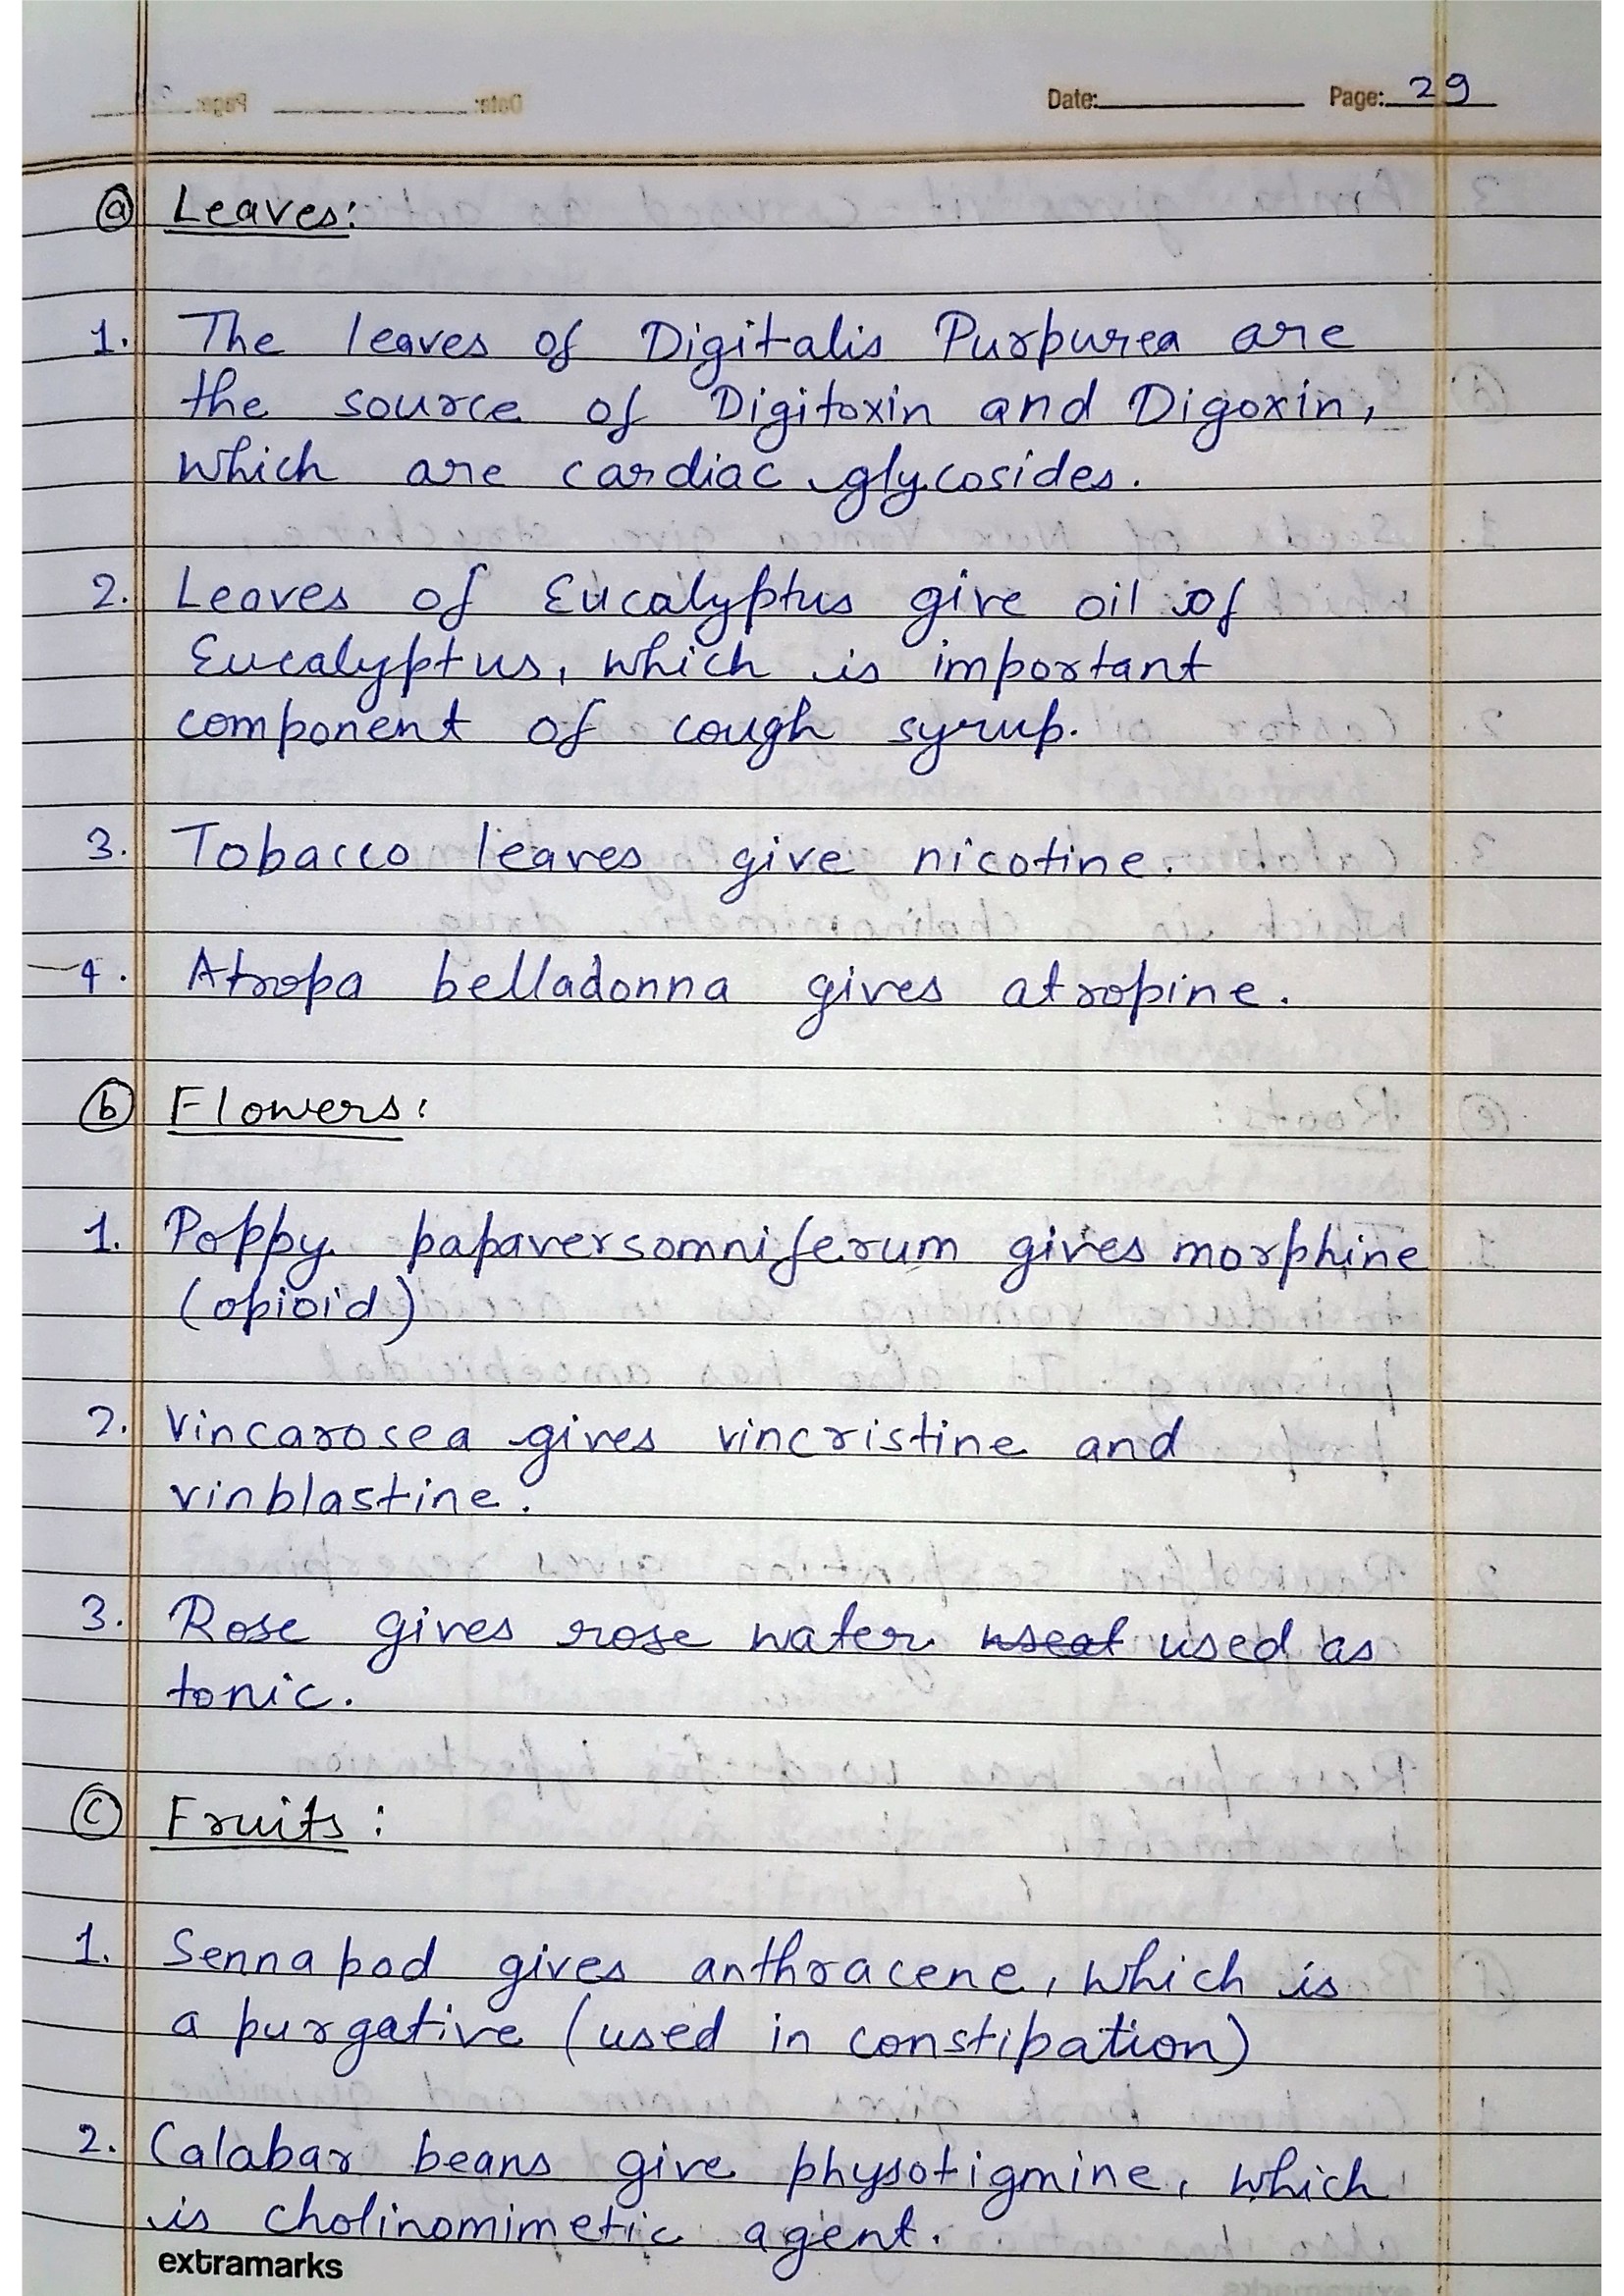 Date: Page: 29
ⓐ Leaves:
1. The leaves of Digitalis Purpurea are
the source of Digitoxin and Digoxin,
which are cardiac glycosides.
2. Leaves of Eucalyptus give oil of
Eucalyptus, which is important
component of cough syrup.
3. Tobacco leaves give nicotine.
4. Atropa belladonna gives atropine.
ⓑ Flowers:
1. Poppy papaversomniferum gives morphine
(opioid)
2. Vincarosea gives vincristine and
vinblastine.
3. Rose gives rose water used as
tonic.
ⓒ Fruits:
1. Senna pod gives anthracene, which is
a purgative (used in constipation)
2. Calabar beans give physotigmine, which
is cholinomimetic agent.
extramarks